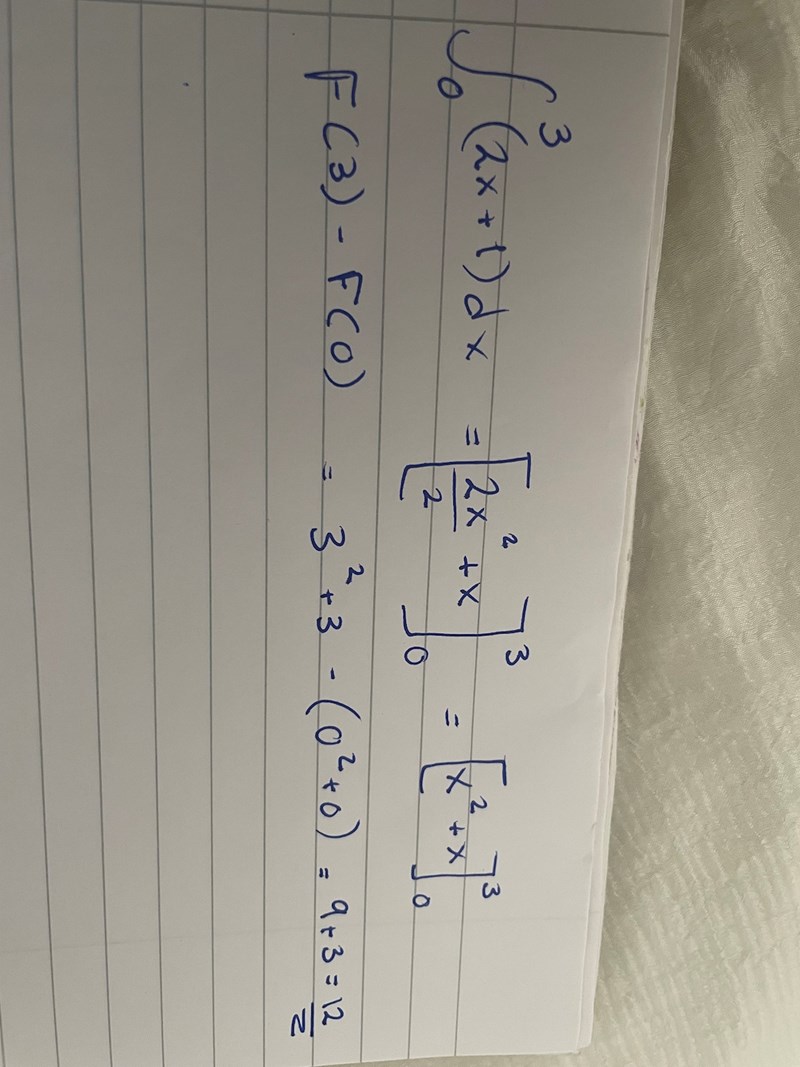 ∫₀³ (2x+1)dx = [2x²/2 + x]₀³ = [x²+x]₀³
F(3) - F(0) = 3²+3 - (0²+0) = 9+3 = 12